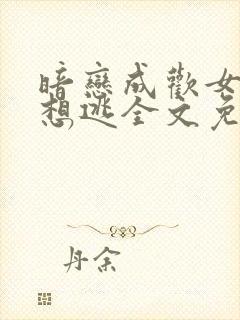 暗戀成歡女
想逃全文免
丹余